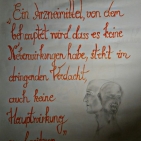 „Ein Arzneimittel, von dem
behauptet wird dass es keine
Nebenwirkungen habe, steht im
dringenden Verdacht,
auch keine
Hauptwirkung